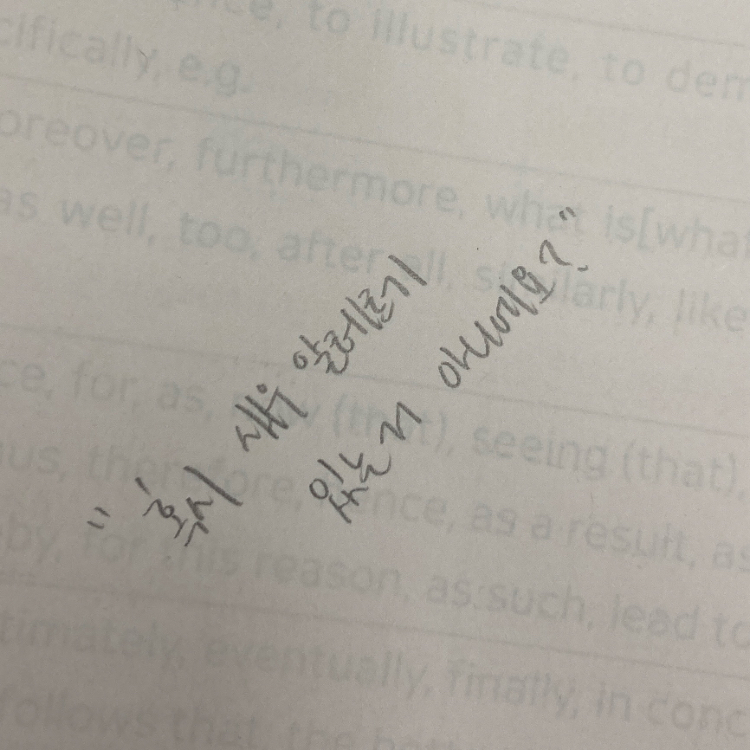 to illustrate, to dem
cifically, e.g.
oreover, furthermore, what is[what
as well, too, after all, similarly, like
"혹시 새우 알레르기
있는거 아니에요?"
ce, for, as, (that), seeing (that),
us, therefore, hence, as a result, as
by, for this reason, as such, lead to
timately, eventually, finally, in conc
follows that, the